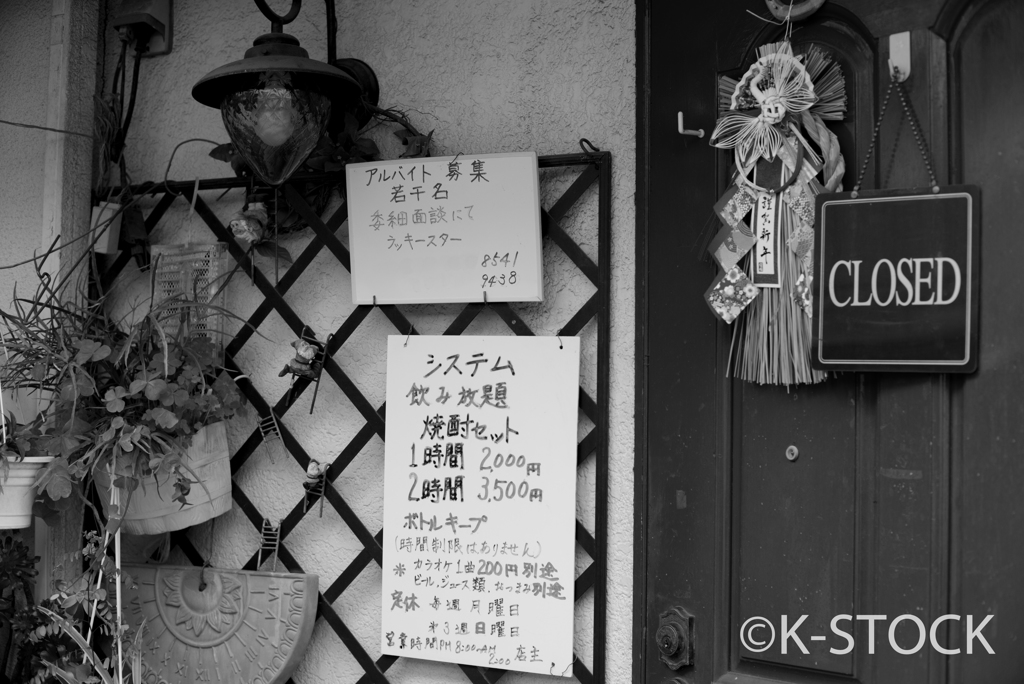 アルバイト 募集
若干名
委細面談にて
ラッキースター
8541
9438
システム
飲み放題
焼酎セット
1時間 2,000円
2時間 3,500円
ボトルキープ
(時間制限はありません)
※ カラオケ1曲200円別途
ビール.ジュース類.おつまみ別途
定休 毎週月曜日
※3週日曜日
営業時間PM8:00~AM
2:00 店主
謹賀新年
CLOSED
©K-STOCK